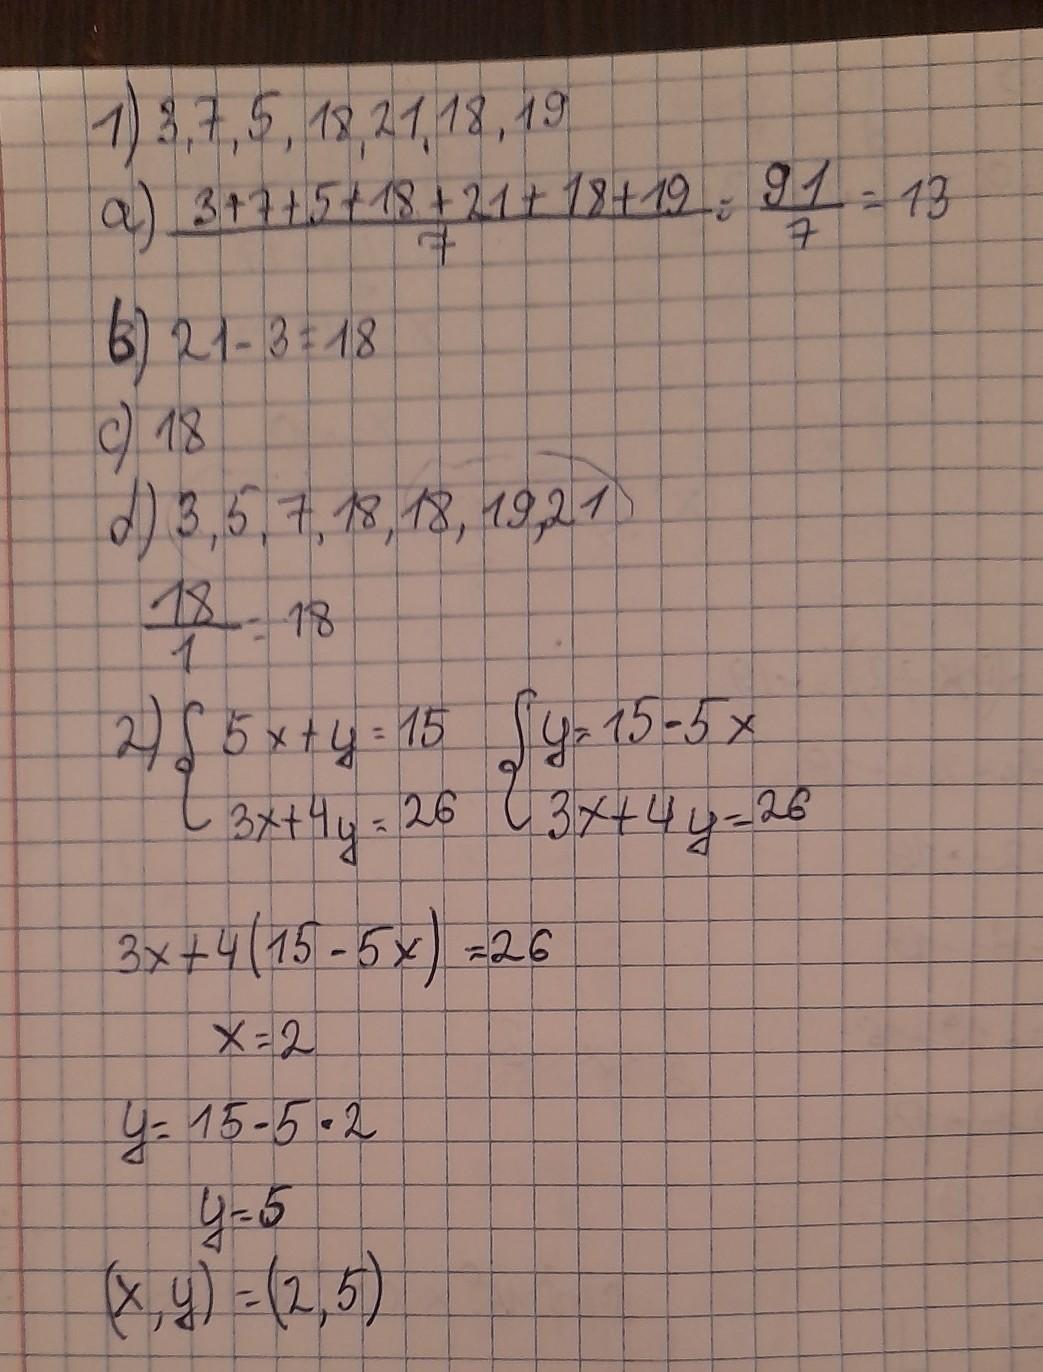 1) 3, 7, 5, 18, 21, 18, 19
a) 3+7+5+18+21+18+19 / 7 = 91 / 7 = 13
b) 21-3=18
c) 18
d) 3, 5, 7, 18, 18, 19, 21
18 / 1 = 18
2) { 5x+y=15 { y=15-5x
3x+4y=26 3x+4y=26
3x+4(15-5x)=26
x=2
y=15-5·2
y=5
(x,y)=(2,5)